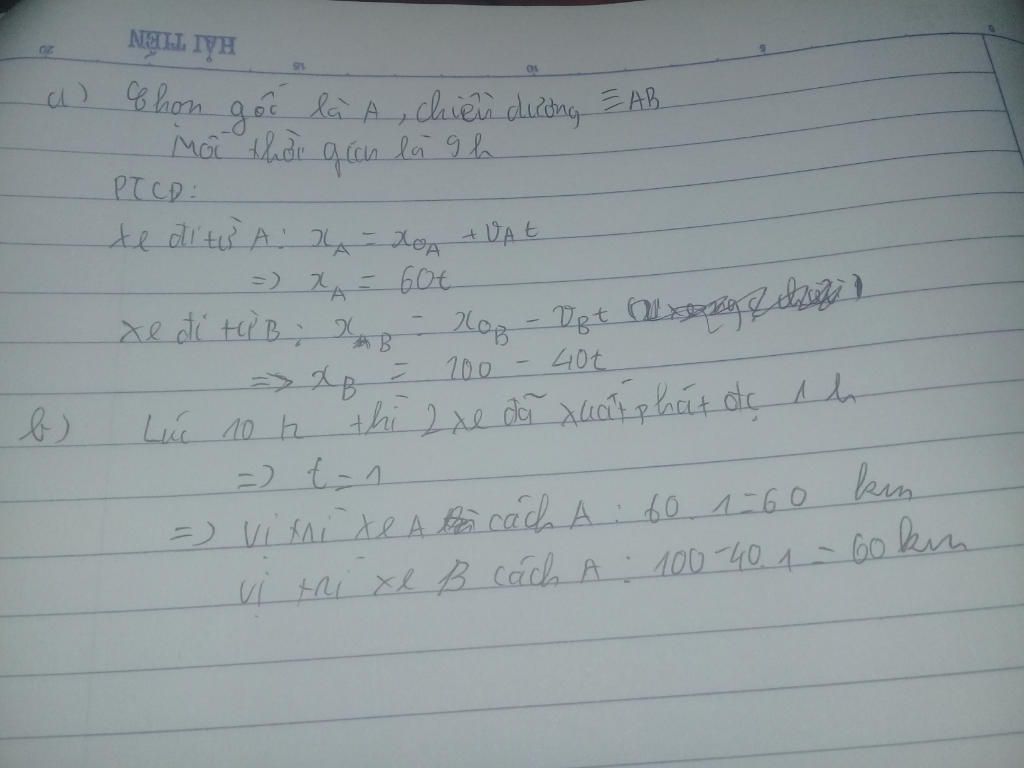 HẢI TIẾN
20 15 10 5 0
a) Chọn gốc là A, chiều dương ≡ AB
Mốc thời gian là 9h
PTCĐ:
Xe đi từ A: x_A = x_{0A} + v_A t
=> x_A = 60t
xe đi từ B: x_B = x_{0B} - v_B t
=> x_B = 100 - 40t
b) Lúc 10 h thì 2 xe đã xuất phát đc 1 h
=> t = 1
=> vị trí xe A cách A : 60.1 = 60 km
vị trí xe B cách A : 100-40.1 = 60 km